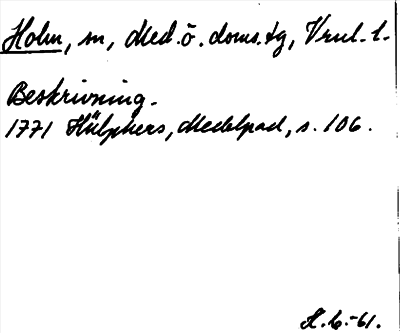 Holm, sn, Med. ö. doms.tg, Vrnl. l.
Beskrivning.
1771 Hülphers, Medelpad, s. 106.
H. G.-61.